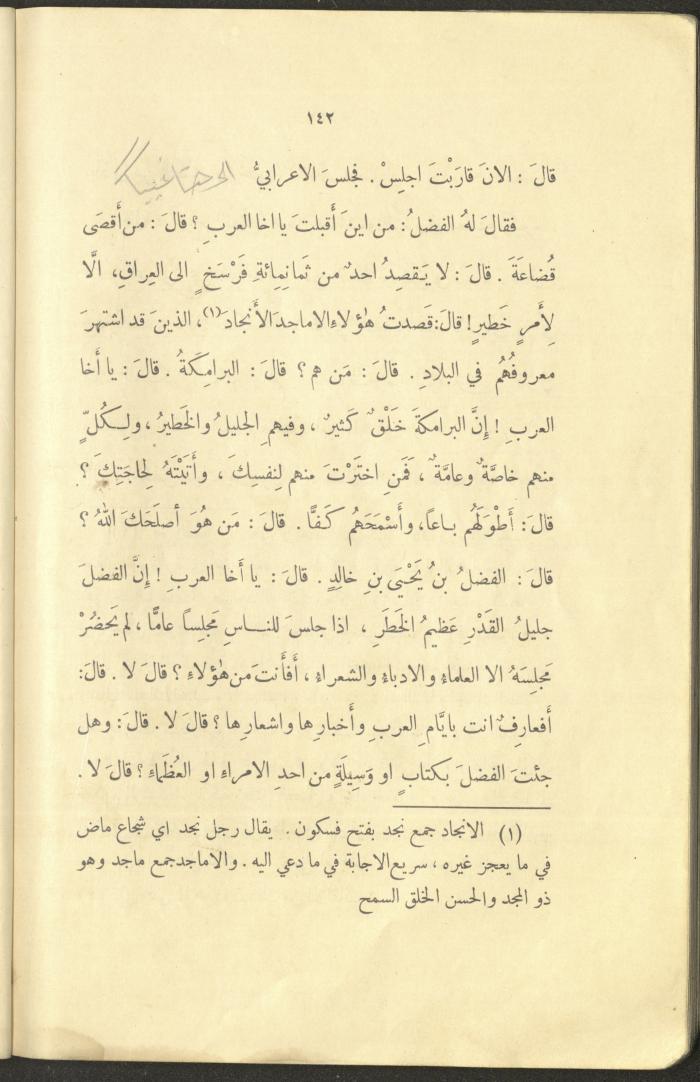 ١٤٢
قالَ : الانَ قارَبْتَ اجلِسْ . فجلسَ الاعرابيُّ
فقالَ لهُ الفضلُ: من اينَ أَقبلتَ يا اخا العربِ ؟ قالَ : من أَقصَى
قُضاعَةَ . قالَ : لا يَقصِدُ احدٌ من ثَمانِمِائةِ فَرْسَخٍ الى العِراقِ، الَّا
لِأَمرٍ خَطيرٍ! قالَ: قَصدتُ هٰؤُلاءِ الاماجدَ الأَنجادَ (١)، الذينَ قد اشتهرَ
معروفُهُم في البلادِ . قالَ : مَن هم ؟ قالَ : البرامِكَةُ . قالَ : يا أَخا
العربِ ! إِنَّ البرامكةَ خَلْقٌ كَثيرٌ ، وفيهمِ الجليلُ والخَطيرُ ، ولِكُلٍّ
منهم خاصَّةٌ وعامَّةٌ ، فَمَنِ اختَرْتَ منهم لِنفسِكَ ، وأَتَيْتَهُ لِحاجَتِكَ ؟
قالَ : أَطْوَلَهُم باعاً، وأَسْمَحَهُم كَفًّا . قالَ : مَن هُوَ أصلَحَكَ اللهُ ؟
قالَ : الفضلُ بنُ يَحْيَى بنِ خالِدٍ . قالَ : يا أَخا العربِ ! إِنَّ الفضلَ
جليلُ القَدْرِ عَظيمُ الخَطَرِ ، اذا جلسَ للناسِ مَجلِساً عامًّا ، لم يَحضُرْ
مَجلِسَهُ الا العلماءُ والادباءُ والشعراءُ ، أَفأَنتَ من هٰؤُلاءِ ؟ قالَ لا . قالَ:
أَفعارِفٌ انت بايَّامِ العربِ وأَخبارِها واشعارِها ؟ قالَ لا . قالَ : وهل
جئتَ الفضلَ بكتابٍ او وَسِيلَةٍ من احدِ الامراءِ او العُظَماءِ ؟ قالَ لا .
(١) الانجاد جمع نجد بفتح فسكون . يقال رجل نجد اي شجاع ماض
في ما يعجز غيره ، سريع الاجابة في ما دعي اليه . والاماجد جمع ماجد وهو
ذو المجد والحسن الخلق السمح